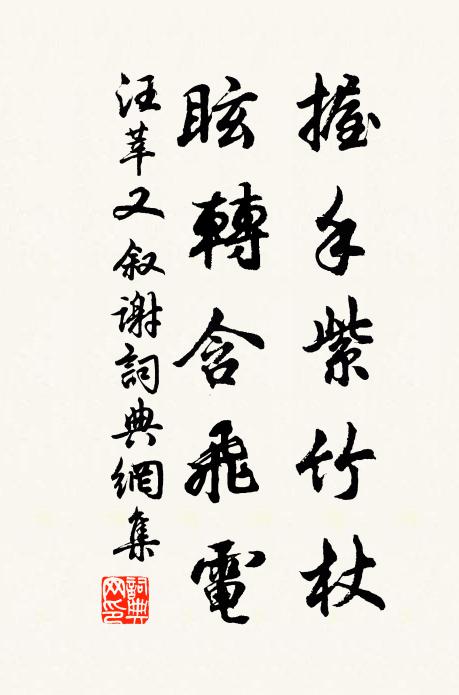 握手紫竹杖
眩轉含飛電
汪莘又叙谢詞典網集
詞典网印